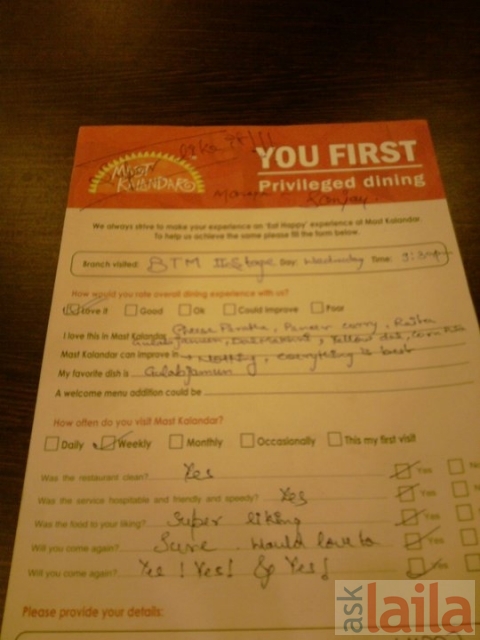 YOU FIRST
MAST KALANDAR
Privileged dining
We always strive to make your experience an 'Eat Happy' experience at Mast Kalandar.
To help us achieve the same please fill the form below.
Branch visited: BTM IInd Stage Day: Wednesday Time: 9:30pm
How would you rate overall dining experience with us?
Love it Good Ok Could improve Poor
I love this in Mast Kalandar Cheese Paratha, Paneer curry, Raita
Gulab jamun, Yellow dal,
Mast Kalandar can improve in → Nothing, everything is best
My favorite dish is Gulab jamun
A welcome menu addition could be
How often do you visit Mast Kalandar?
Daily Weekly Monthly Occasionally This my first visit
Was the restaurant clean? Yes Yes
Was the service hospitable and friendly and speedy? Yes Yes
Was the food to your liking? Super liking Yes
Will you come again? Sure. Would love to Yes
Will you come again? Yes! Yes! & Yes! Yes
Please provide your details:
ask laila